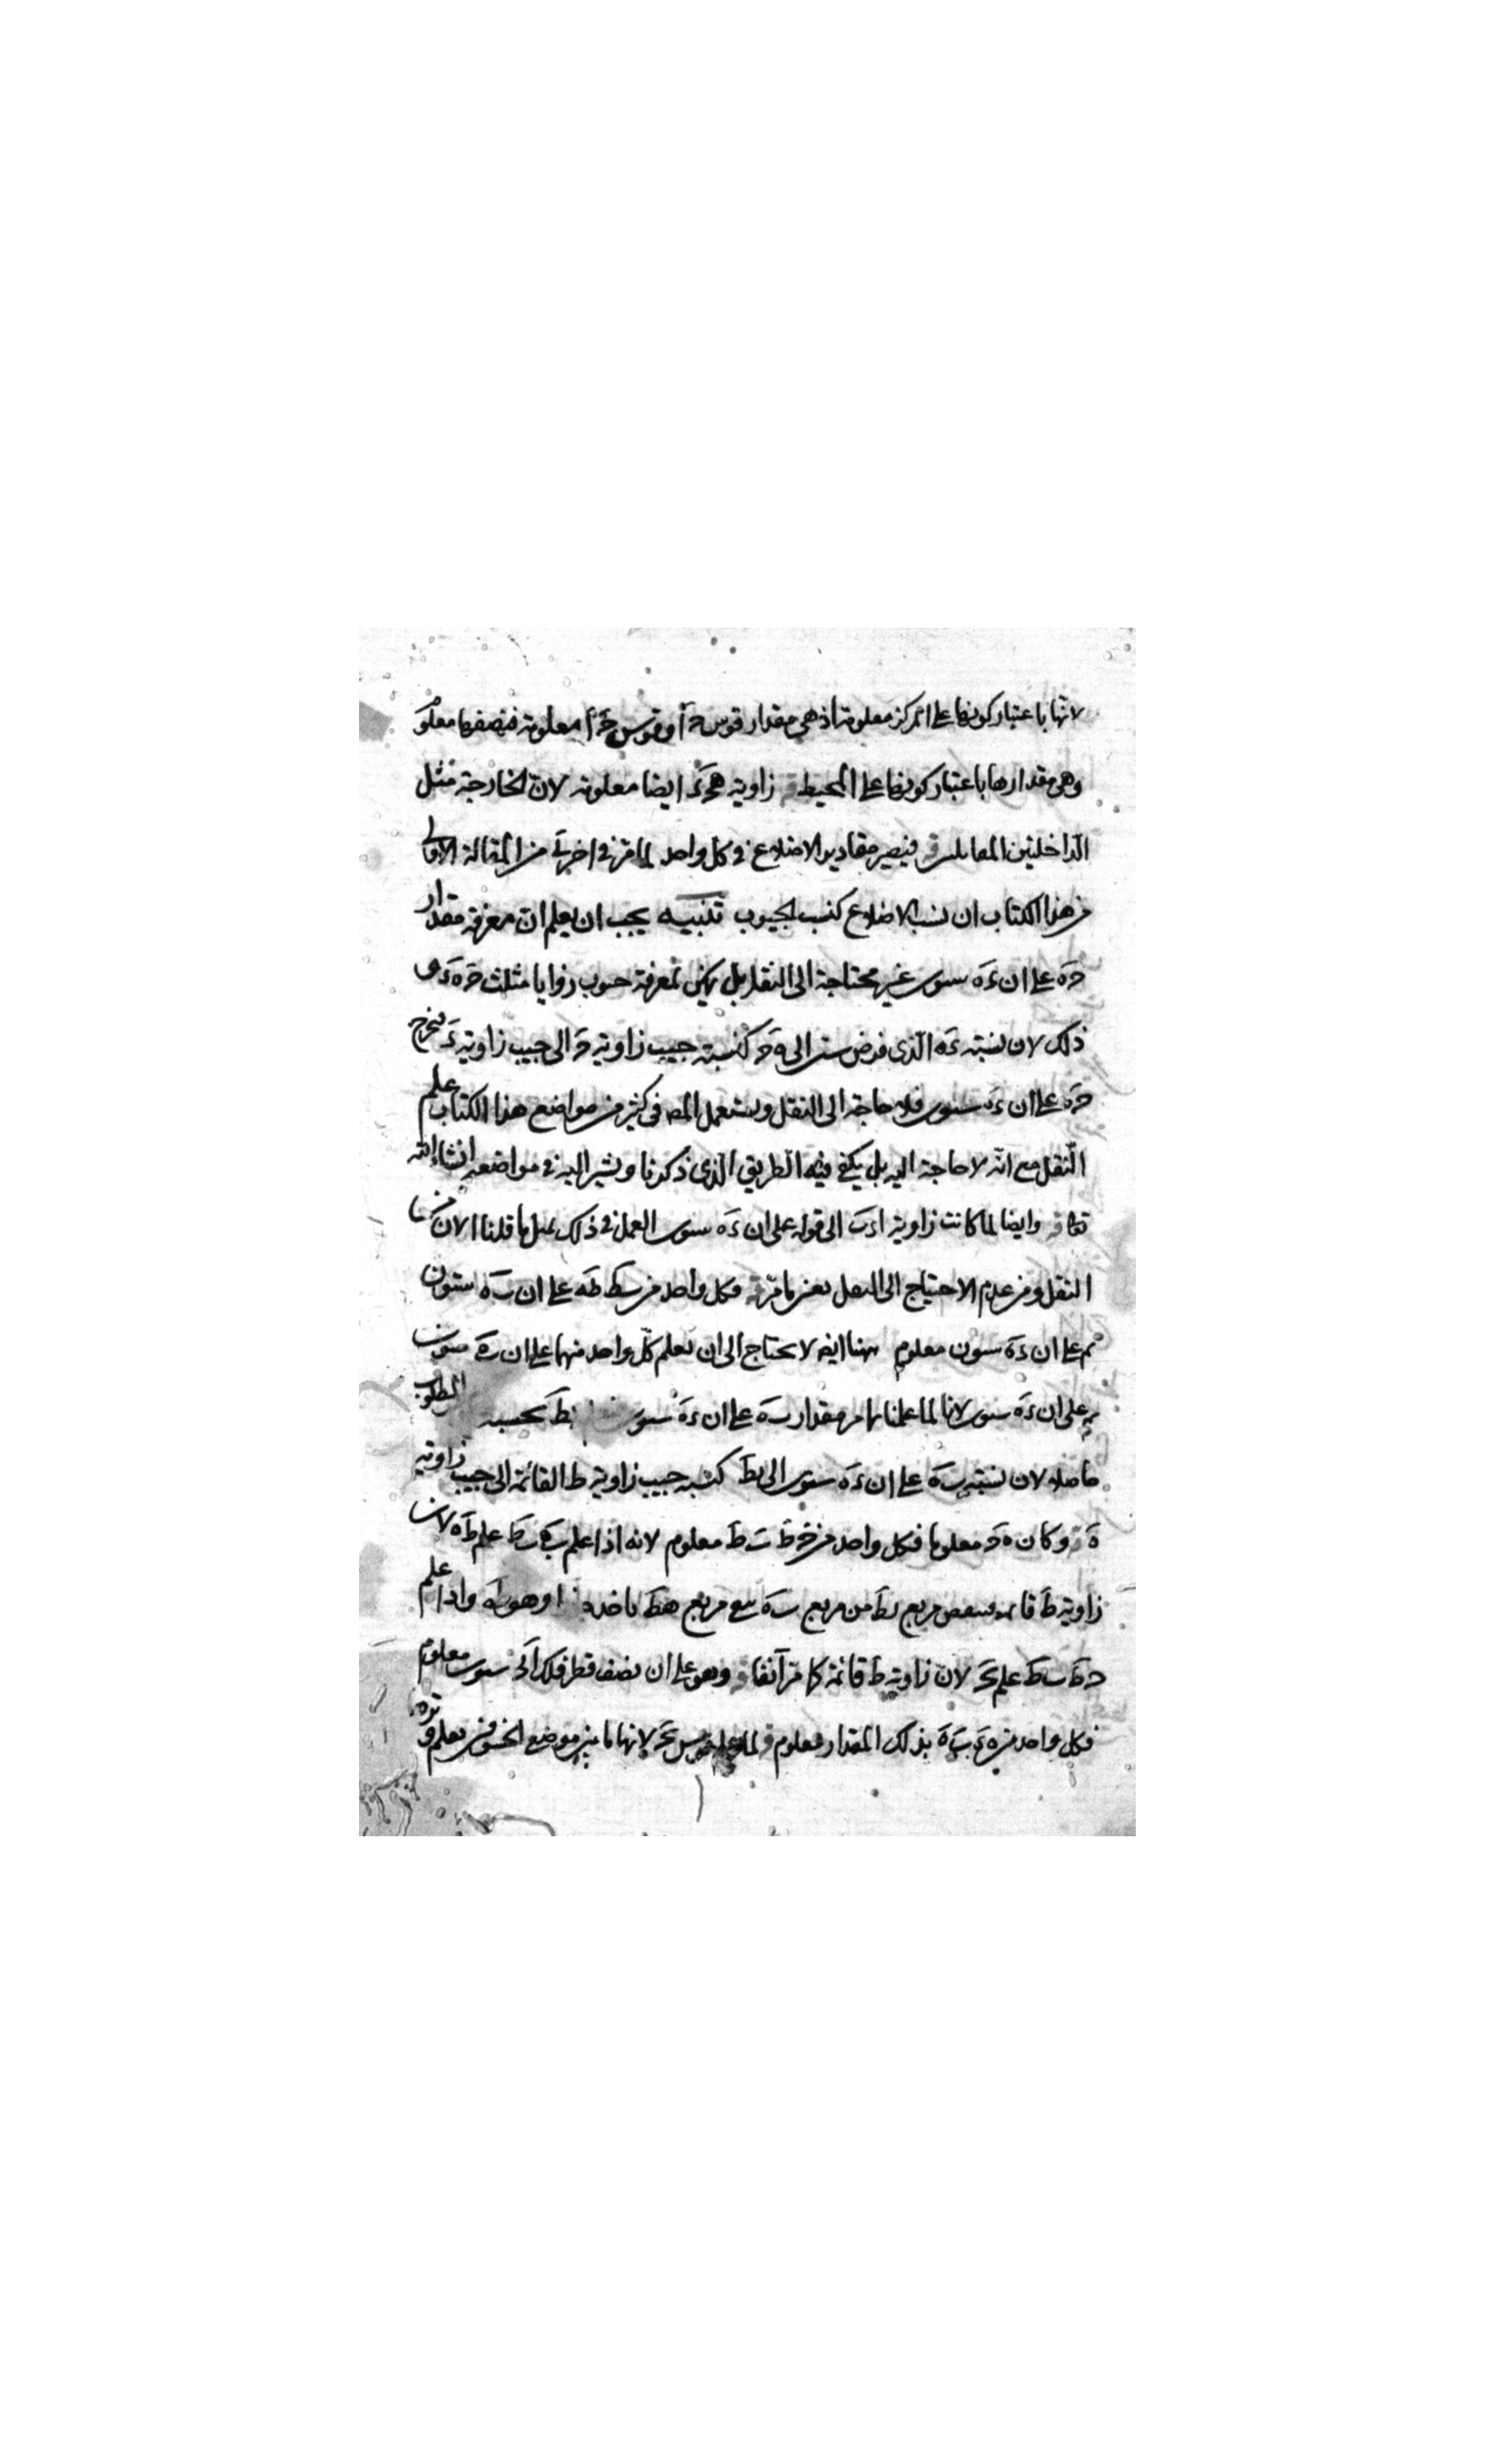 لانها باعتبار كونها على المركز معلومة اذ هي مقدار قوس ا وقوس ا معلومة فنصفها معلوم
وهي مقدارها باعتبار كونها على المحيط زاوية ايضا معلومة لان الخارجة مثل
الداخلتين المقابلتين فيصير مقادير الاضلاع في كل واحد لما مر في اخر من المقالة الاولى
من هذا الكتاب ان نسب الاضلاع كنسب الجيوب تنبيه يجب ان يعلم ان معرفة مقدار
حه على ان ءه ستون غير محتاجة الى النقل بل يكفي لمعرفة جيوب زوايا مثلث حه ء
ذلك لان نسبة ءه الذي فرض ستين الى ه ح كنسبة جيب زاوية ح الى جيب زاوية ء فيخرج
حه على ان ءه ستون فلا حاجة الى النقل ويستعمل المص في كثير من مواضع هذا الكتاب علم
النقل مع انه لا حاجة اليه بل يكفي فيه الطريق الذي ذكرنا ونشير اليه في مواضعه انشاء الله
تعا وايضا لما كانت زاوية ا ء ب الى قوله على ان ءه ستون العمل في ذلك بمثل ما قلنا الان من
النقل ومن عدم الاحتياج الى النقل بعين ما مر فكل واحد من بط طه على ان به ستون
ثم على ان ءه ستون معلوم ههنا ايض لا يحتاج الى ان نعلم كل واحد منهما على ان به ستون
بل على ان ءه ستون لانا لما علمنا مما مر مقدار به على ان ءه ستون بط بحسبه المطلوب
حاصله لان نسبة به على ان ءه ستون الى بط كنسبة جيب زاوية ط القائمة الى جيب زاوية
ه وكان ه ح معلوما فكل واحد من ح ط ب ط معلوم لانه اذا علم به بط علم طه لان
زاوية ط قائمة مربع بط من مربع به مربع هط وهو طه واذا علم
ح ط ب ط علم بح لان زاوية ط قائمة كما مر آنفا وهو على ان نصف قطر فلك ستون معلوم
فكل واحد من ه ء ب ه بذلك المقدار معلوم لانها ما بين موضع الخسوفين